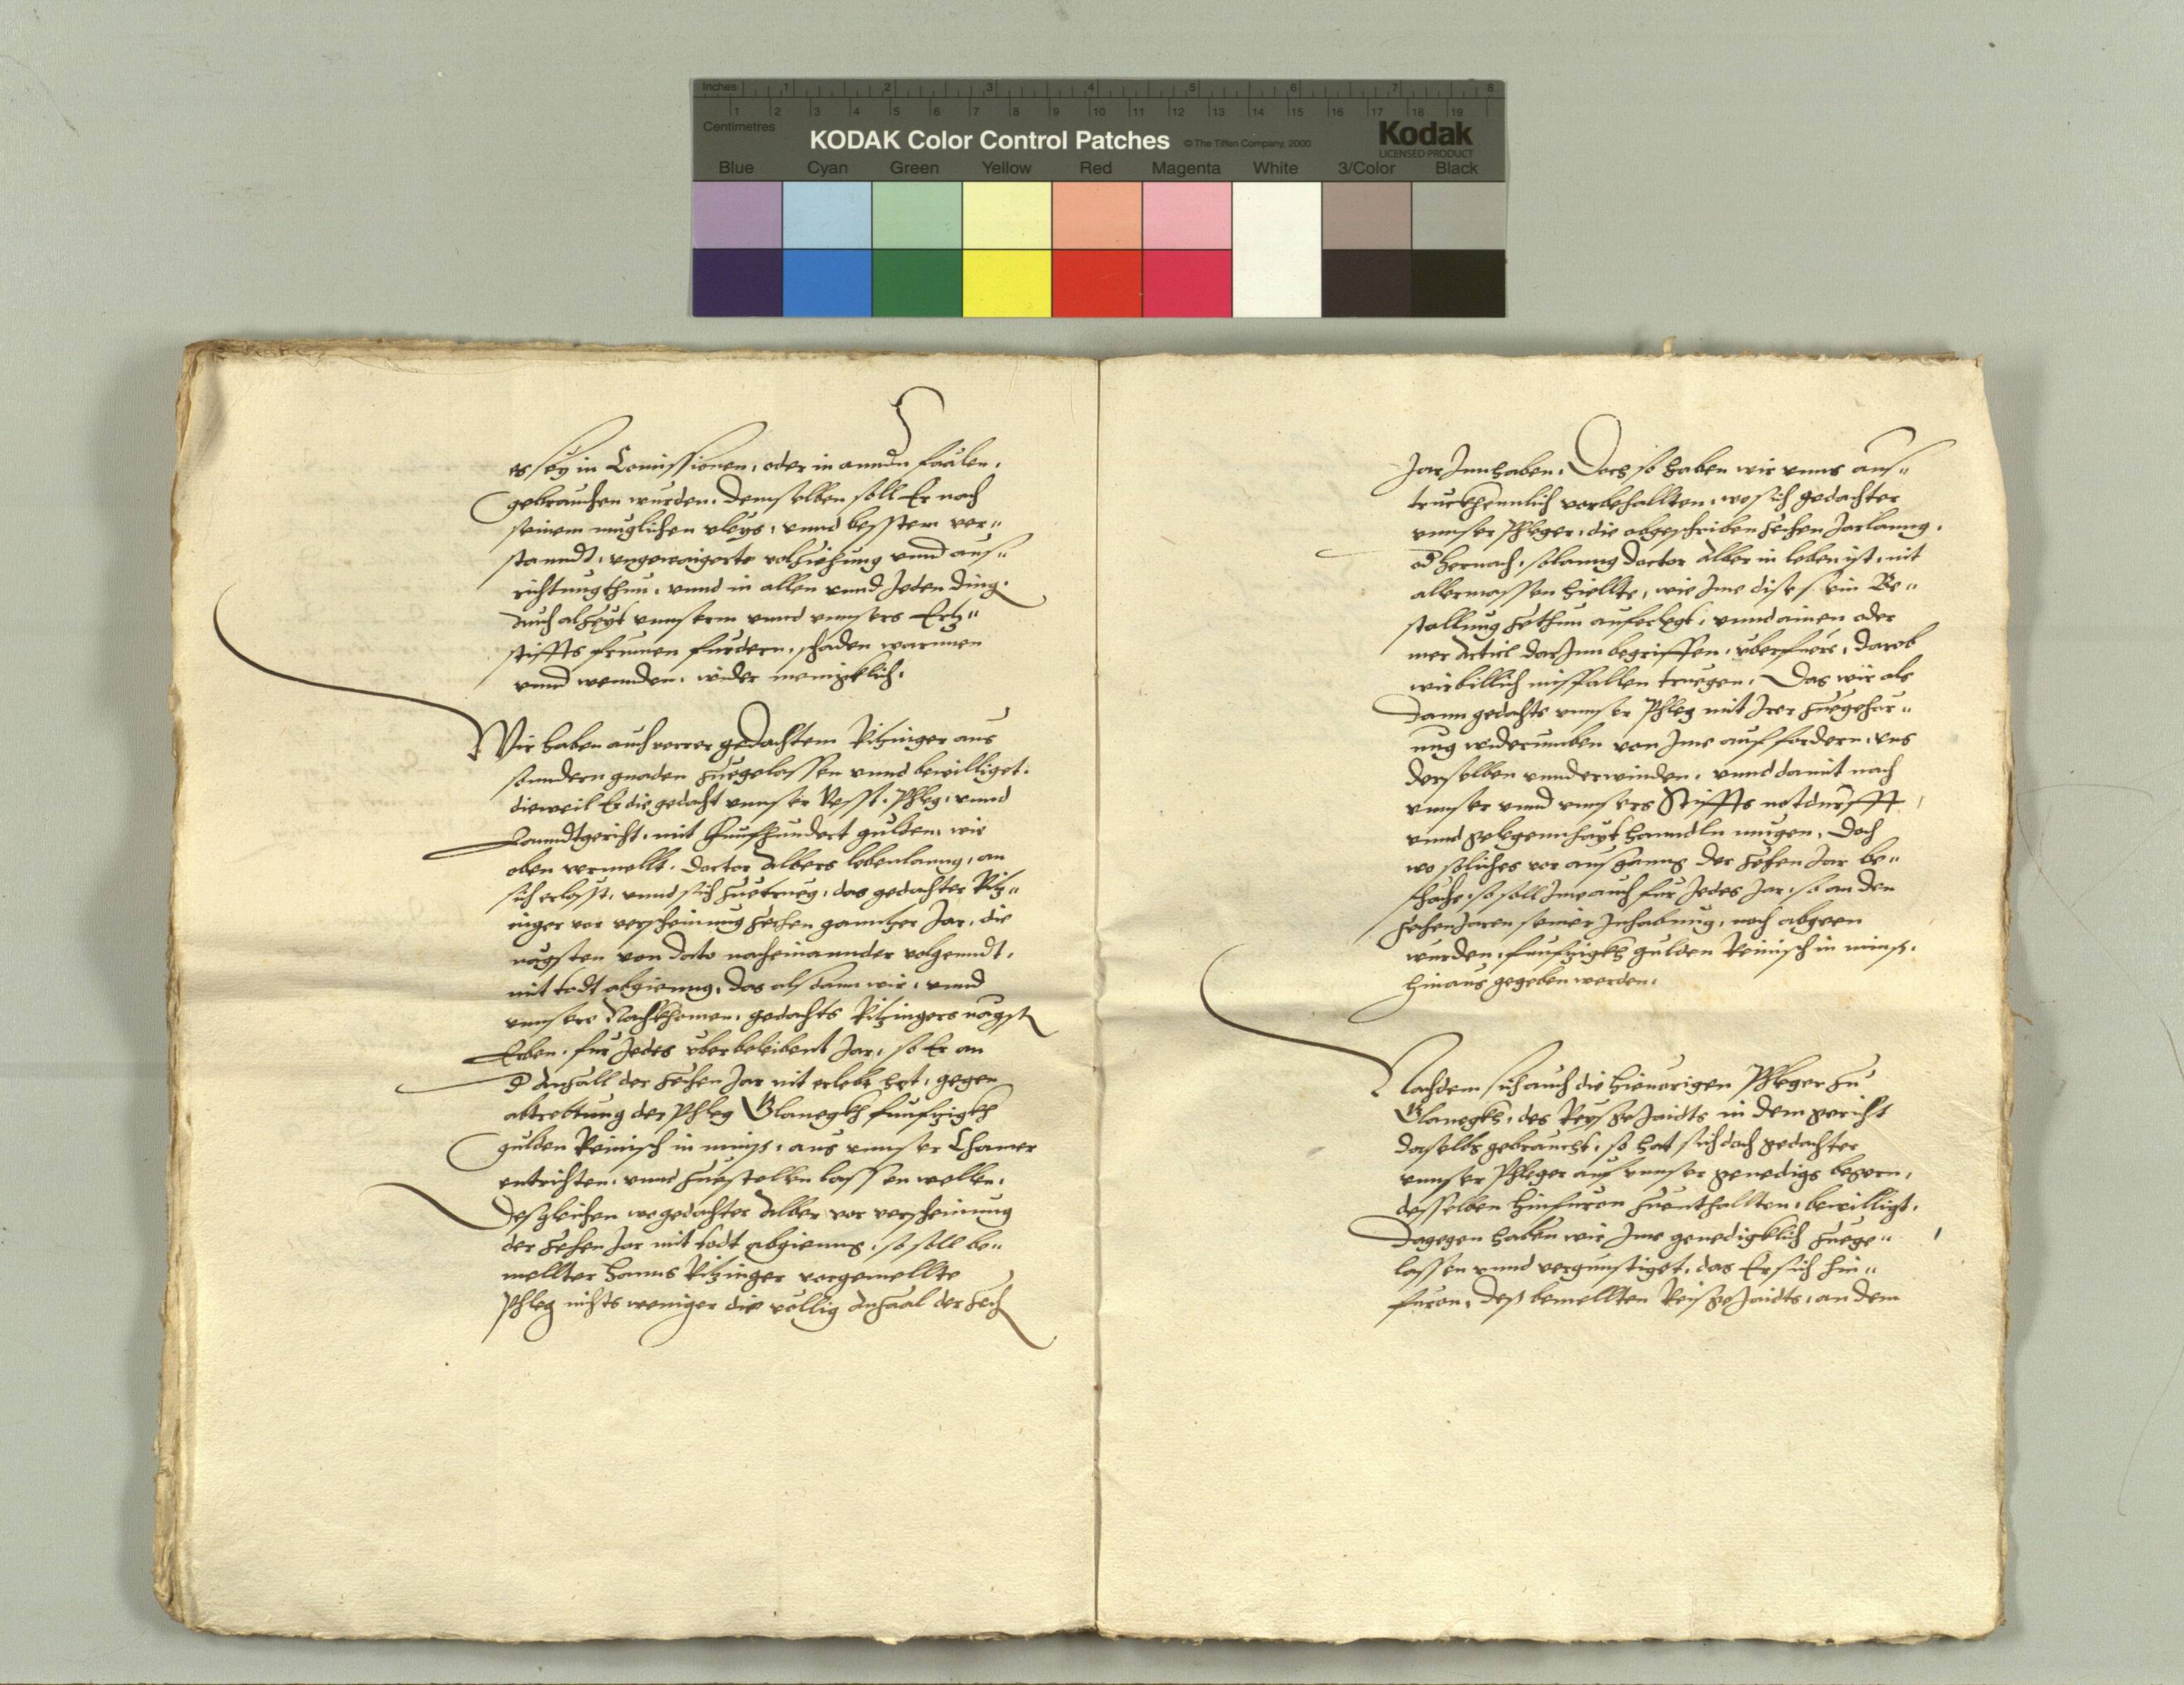 Inches 1 2 3 4 5 6 7 8
1 2 3 4 5 6 7 8 9 10 11 12 13 14 15 16 17 18 19
Centimetres
KODAK Color Control Patches © The Tiffen Company, 2000 Kodak
LICENSED PRODUCT
Blue Cyan Green Yellow Red Magenta White 3/Color Black
es sey in Comissionen, oder in anndn fäälen,
gebrauchen wurden. demselben soll Er nach
seinem muglichen vleys, vnnd besstem ver„
stanndt, vngewaigerte volziehung vnnd aus„
richtung thun, vnnd in allen vnnd Jeden ding.
Auch alzeyt vnnserm vnnd vnnsers Ertz„
stiffts frumen furdern, schaden warnnen
vnnd wennden, wider menigclich.
Wir haben auch verrer gedachtem Ritzinger aus
sonndern gnaden zuegelassen vnnd bewilliget.
dieweil Er die gedacht vnnser Vesst, Phleg, vnnd
Lanndtgericht, mit Funfhundert gulden, wie
oben vermellt. doctor Albers lebenlanng, an
sich erlosst, vnnd sich zuetrueg, das gedachter Ritz„
inger vor verscheinung zechen ganntzer Jar, die
nägsten von dato nacheinannder volgenndt,
mit todt abgienng, das alsdann wir, vnnd
vnnsere Nachkhomen, gedachts Ritzingers nägst
Erben, fur Jedes vberbeleibent Jar, so Er an
d Anzall der zehen Jar nit erlebt het, gegen
abtrettung der Phleg Glanegkh funfzigkh
gulden Reinisch in muns, aus vnnser Chamer
entrichten, vnnd zuestellen lassen wellen.
Desgleichen wo gedachter Alber vor verscheinung
der zehen Jar mit todt abgienng, so soll be„
mellter Hanns Ritzinger vorgemellte
Phleg nichts weniger die vollig Anzaal der zech
Jar Innhaben. Doch so haben wir vnns aus„
truckhennlich vorbehallten, wo sich gedachter
vnnser Phleger, die obgeschriben zechen Jarlanng,
od hernach, solanng doctor Alber in leben ist, nit
allermassen hiellte, wie Ime dise sein Be„
stallung zethun auferlegt, vnnd ainen oder
mer Articl darJnn begriffen, vberfuere, darob
wir billich misfallen truegen. Das wir als
Dann gedachte vnnser Phleg mit Irer zuegehör„
ung widerumben von Ime auffordern, vns
derselben vnnderwinden, vnnd damit nach
vnnser vnnd vnnsers Stiffts notdurfft,
vnnd gelegennhayt hanndln mugen. Doch
wo solches vor ausganng der zehen Jar be„
schäche, so soll Ime auch fur Jedes Jar, so an den
zehen Jaren seiner Inhabung, noch abgeen
wurden, funfzigkh gulden Reinisch in muns,
hinaus gegeben werden.
Nachdem sich auch die hieuorigen Phleger zu
Glanegkh, des Reysgejaidts in dem gericht
daselbs gebraucht, so hat sich doch gedachter
vnnser Phleger auf vnnser genedigs begern,
desselben hinfuron zuenthallten, bewilligt.
Dagegen haben wir Ime genedigklich zuege„
lassen vnnd vergunstiget, das Er sich hin„
furon, des bemellten Reisgejaidts, an dem